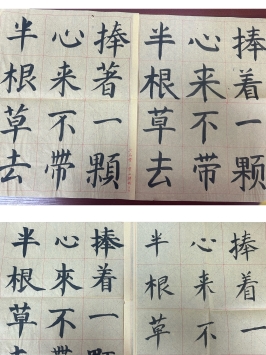 捧著一顆
心来不帶
半根草去
捧着一
心来不带
半根草去
捧着一
心來不
半根草
捧着一
心来不
半根草